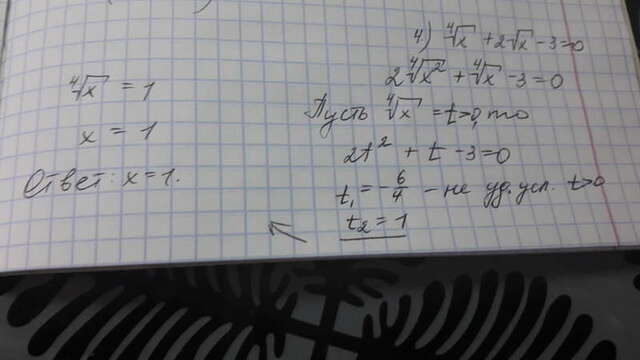 4) ⁴√x + 2√x - 3 = 0
2⁴√x² + ⁴√x - 3 = 0
Пусть ⁴√x = t
2t² + t - 3 = 0
t₁ = -6/4 - не уд. усл. t>0
t₂ = 1
⁴√x = 1
x = 1
Ответ: x = 1.